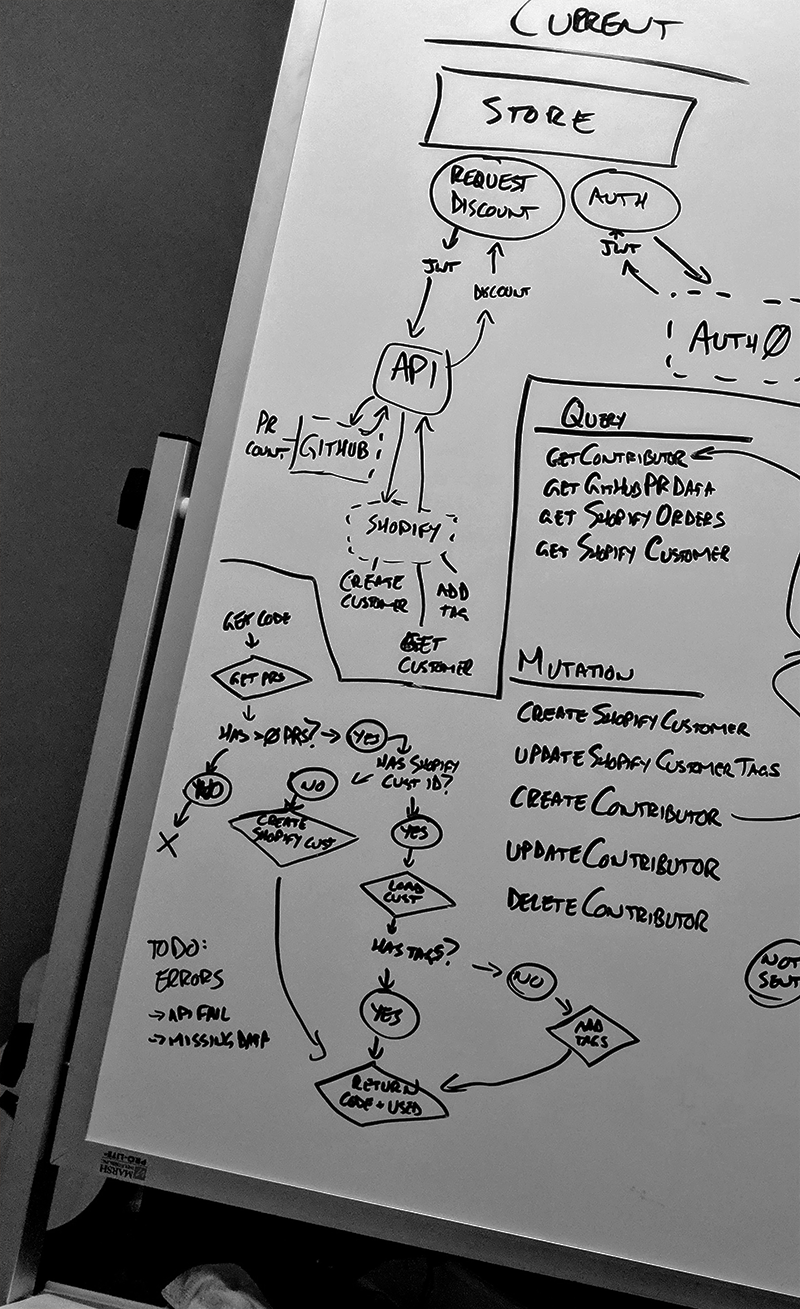 CURRENT
STORE
REQUEST
DISCOUNT
AUTH
JWT
DISCOUNT
JWT
AUTH0
API
PR
COUNT
GITHUB
SHOPIFY
CREATE
CUSTOMER
ADD
TAG
GET
CUSTOMER
QUERY
GETCONTRIBUTOR
GET GITHUB PR DATA
GET SHOPIFY ORDERS
GET SHOPIFY CUSTOMER
MUTATION
CREATE SHOPIFY CUSTOMER
UPDATE SHOPIFY CUSTOMER TAGS
CREATE CONTRIBUTOR
UPDATE CONTRIBUTOR
DELETE CONTRIBUTOR
NOT
SENT
GET CODE
GET PRS
HAS >0 PRS?
YES
NO
X
HAS SHOPIFY
CUST ID?
NO
CREATE
SHOPIFY CUST
YES
LOAD
CUST
HAS TAGS?
NO
YES
ADD
TAGS
RETURN
CODE + USED
TODO:
ERRORS
→ API FAIL
→ MISSING DATA
MARSH
PRO-LITE